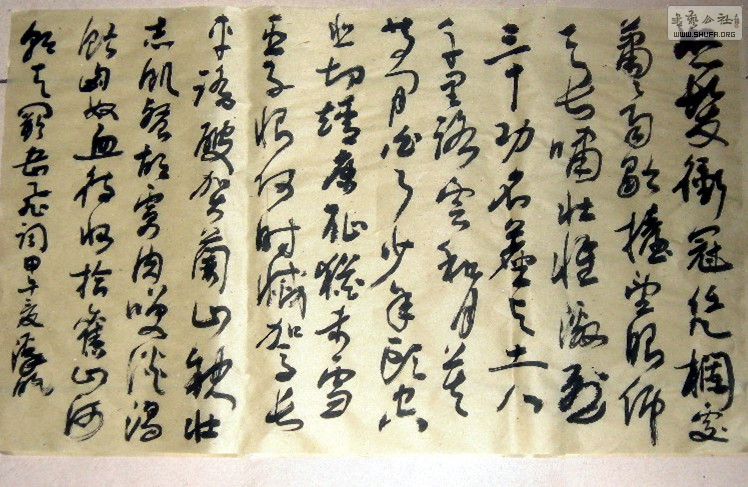 怒髮衝冠凭欄處
蕭〻雨歇擡望眼仰
天长嘯壮懷激烈
三十功名塵与土八
千里路雲和月莫
等閒白了少年頭空
悲切靖康耻猶未雪
臣子恨何时滅驾长
車踏破贺蘭山缺壮
志飢餐胡虜肉笑談渴
飲匈奴血待收拾舊山河
朝天闕岳飛词甲午夏
書藝公社
WWW.SHUFA.ORG